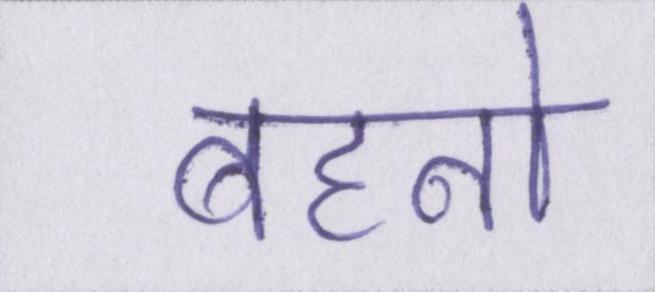 बहनो